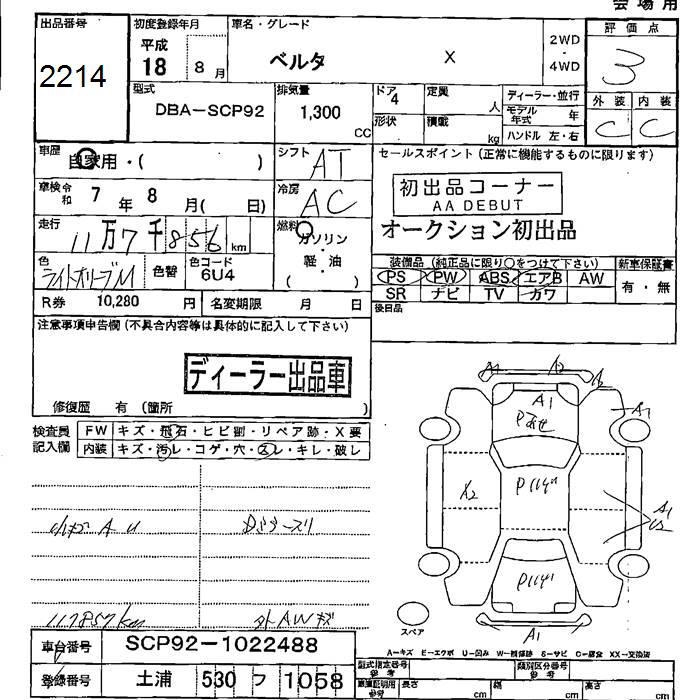 会場用
出品番号
2214
初度登録年月
平成
18 8月
車名・グレード
ベルタ X
2WD
・
4WD
評価点
3
外装 内装
C C
型式
DBA-SCP92
排気量
1,300
CC
ドア
4
定員
人
形状
積載
kg
ディーラー・並行
モデル年式 年
ハンドル 左・右
車歴
自家用・( )
シフト
AT
セールスポイント(正常に機能するものに限ります)
初出品コーナー
AA DEBUT
オークション初出品
車検 令和 7年 8月( 日)
冷房
AC
走行
11万7千856km
燃料
ガソリン
・
軽・油
( )
色
ライトオリーブM
色替
色コード
6U4
装備品(純正品に限り○をつけて下さい)
PS PW ABS エアB AW
SR ナビ TV カワ
新車保証書
有・無
R券 10,280 円
名変期限 月 日
後日品
注意事項申告欄(不具合内容等は具体的に記入して下さい)
ディーラー出品車
修復歴 有(箇所 )
検査員
記入欄
FW キズ・飛石・ヒビ割・リペア跡・X要
内装 キズ・汚レ・コゲ・穴・スレ・キレ・破レ
小キズ A U
117857km
外AWキズ
A1
A1
A1
A1
X2
スペア
A-キズ E-エクボ U-凹み W-補修跡 S-サビ C-腐食 XX-交換済
車台番号
SCP92-1022488
登録番号
土浦 530 フ 1058
型式指定番号
参考
類別区分番号
参考
長さ cm
幅 cm
高さ cm